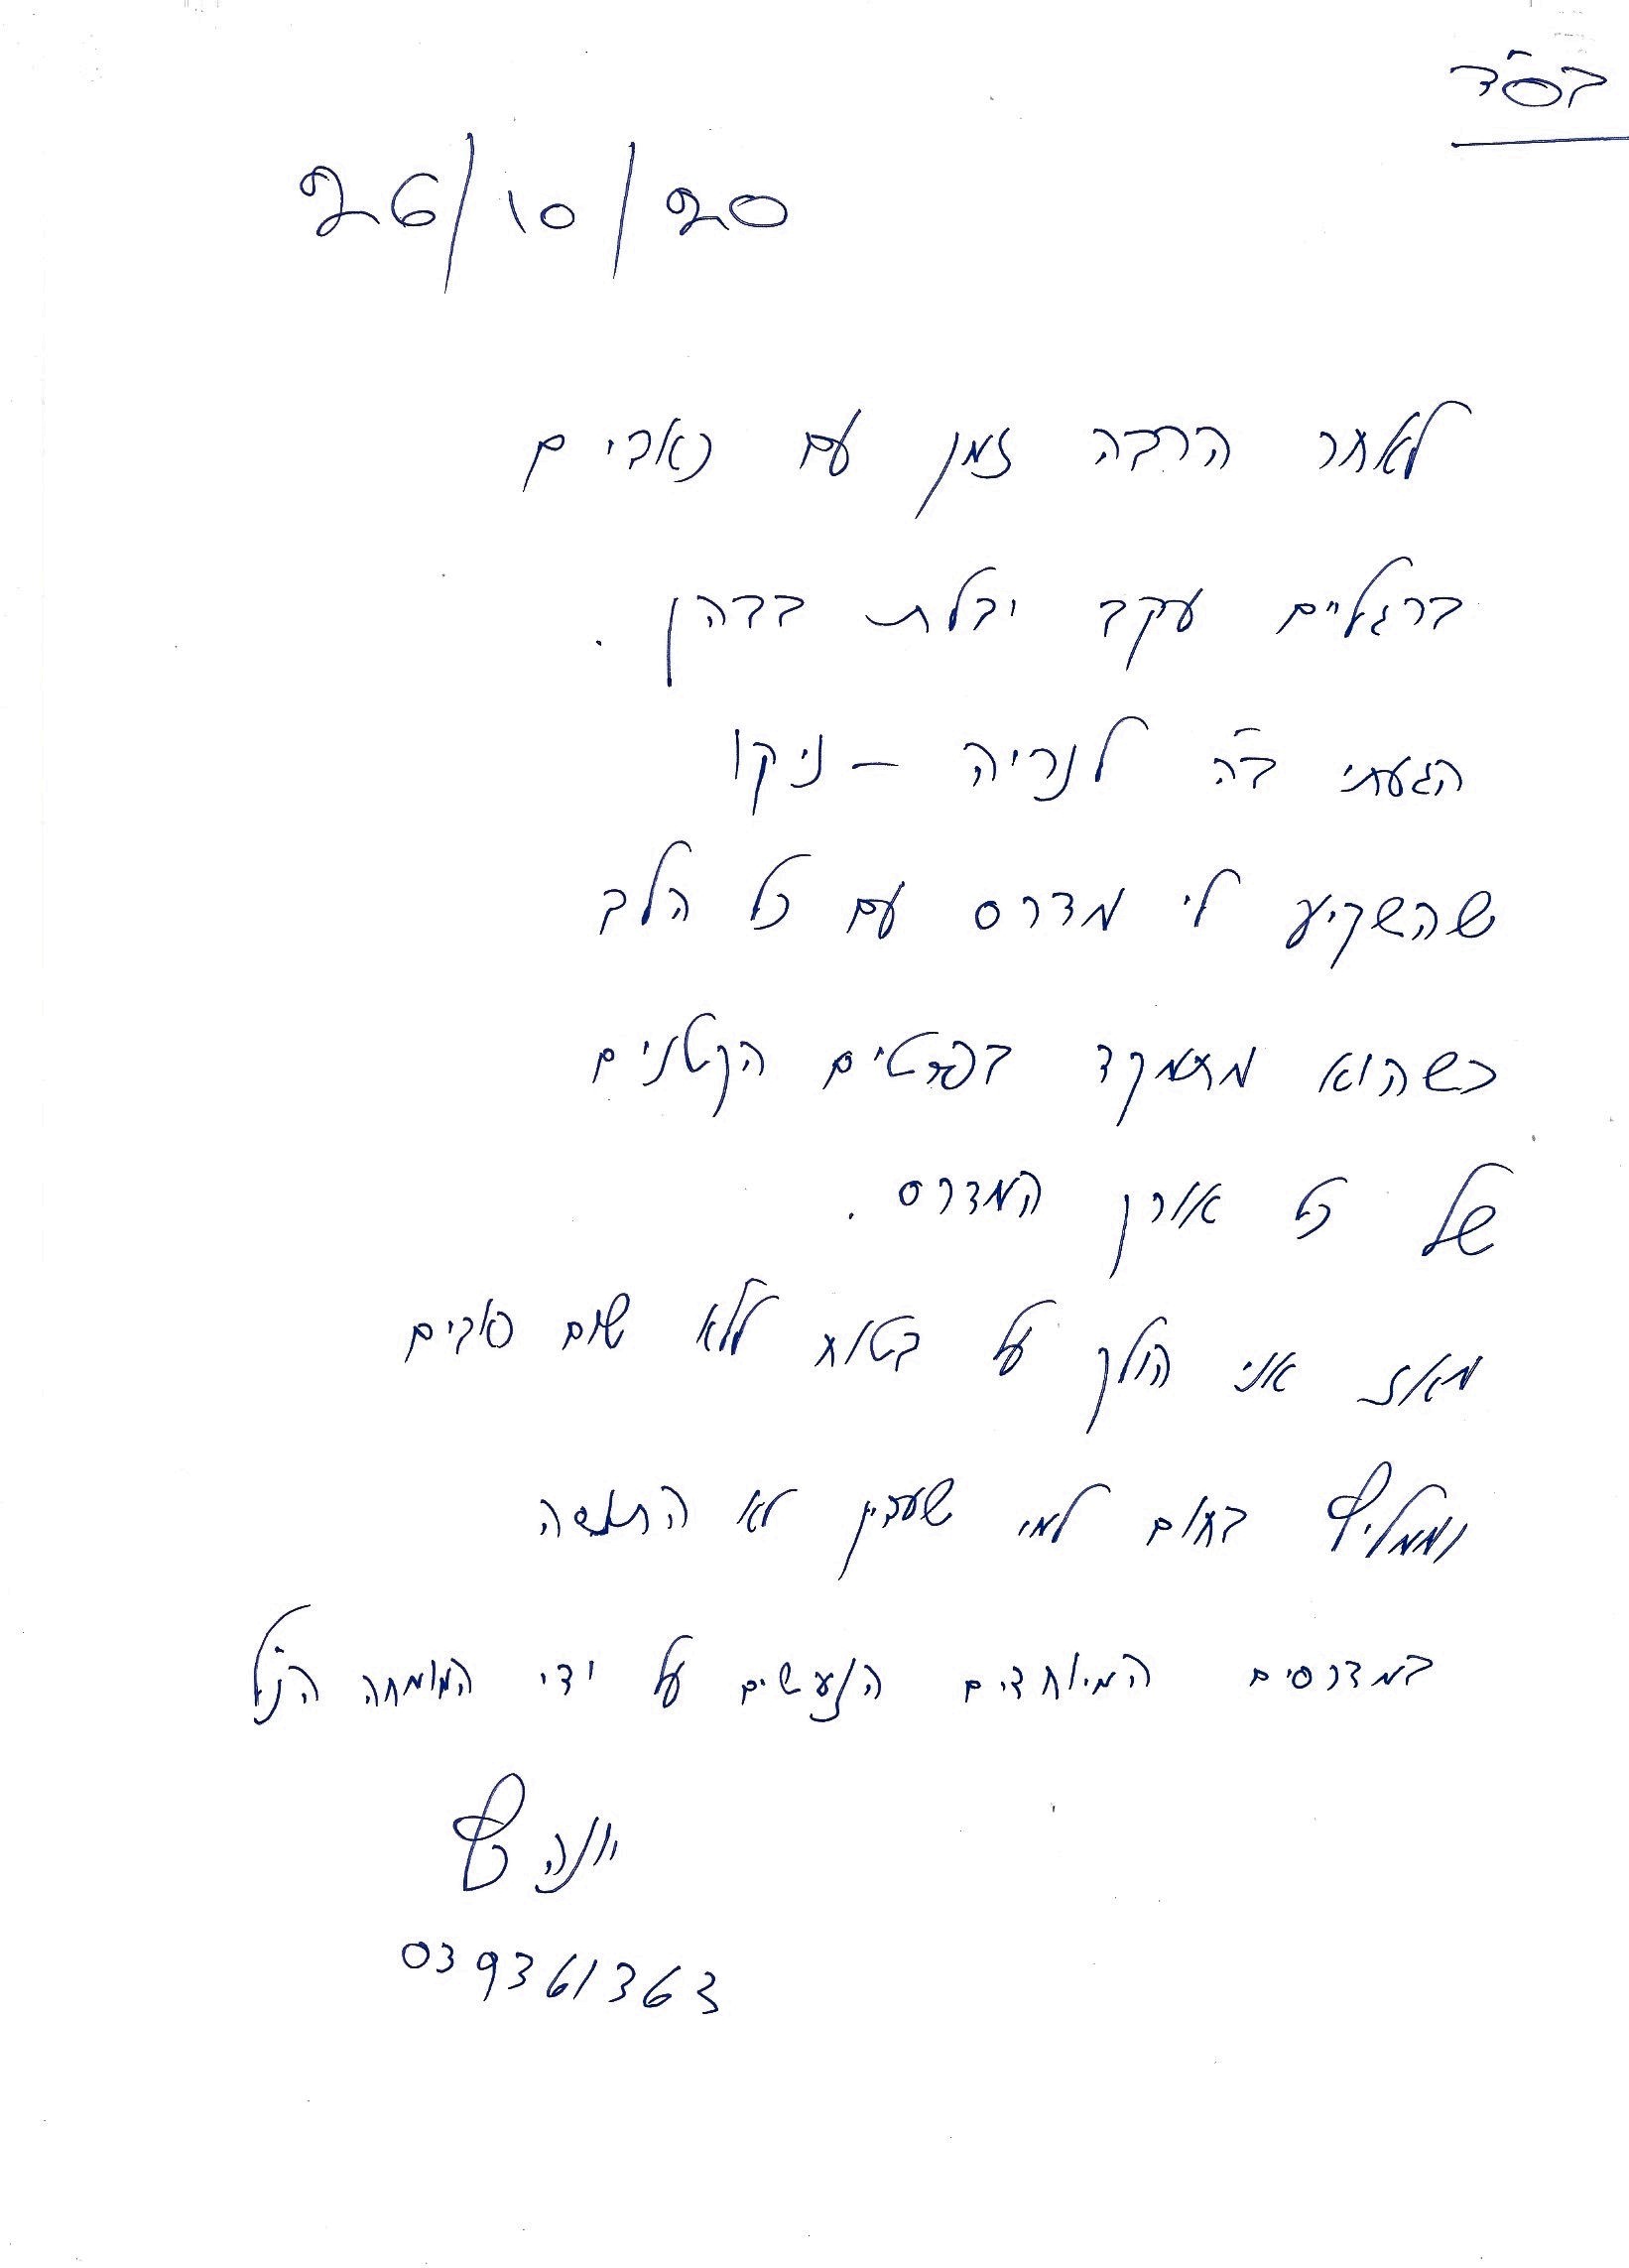 בס"ד
26/10/20
לאחר הרבה זמן עם כאבים
ברגליים עקב יבלת בבהן.
הגעתי ב"ה לנריה - ניקו
שהשקיע לי מדרס עם כל הלב
כשהוא מתמקד בפרטים הקטנים
של כל אורך המדרס.
מאז אני הולך על בטוח ללא שום כאבים
וממליץ בחום למי שעדיין לא התנסה
במדרסים המיוחדים הנעשים על ידי המומחה הנ"ל
יונה כץ
039361363